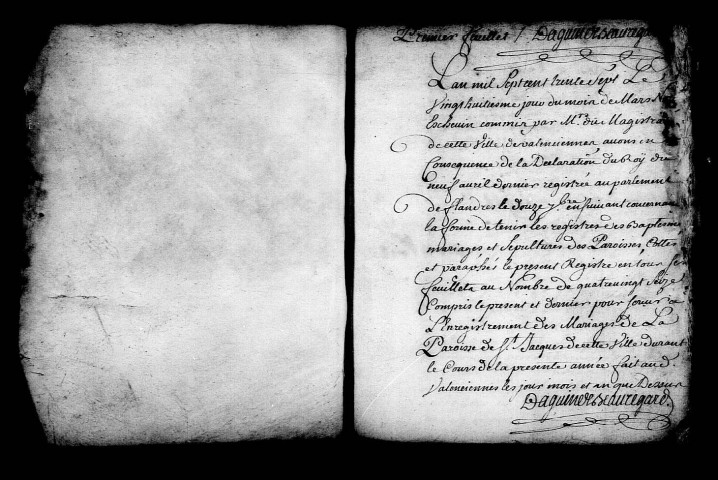 Premier feuillet /. Daguin de Beauregard
L'an mil Sept cent trente Sept Le
Vingt huitiesme jour du mois de Mars No
Eschevin commis par Mrs du Magistra
de cette Ville de valenciennes avons en
Consequence de la Declaration du Roÿ du
neuf avril dernier registrée au parlement
de flandres le douze 7bre ensuivant concernan
la forme de tenir les registres des Baptesme
mariages et Sepultures des Paroisses Cottes
et paraphés le present Registre en tous se
feuillets au Nombre de quatrevingt Seize
Compris le present et dernier pour servir a
L'Enregistrement des Mariages de La
Paroisse de St Jacques de cette Ville durant
le Cours de la presente année fait aud.
Valenciennes les jour mois et an que Dessus
Daguin de Beauregard